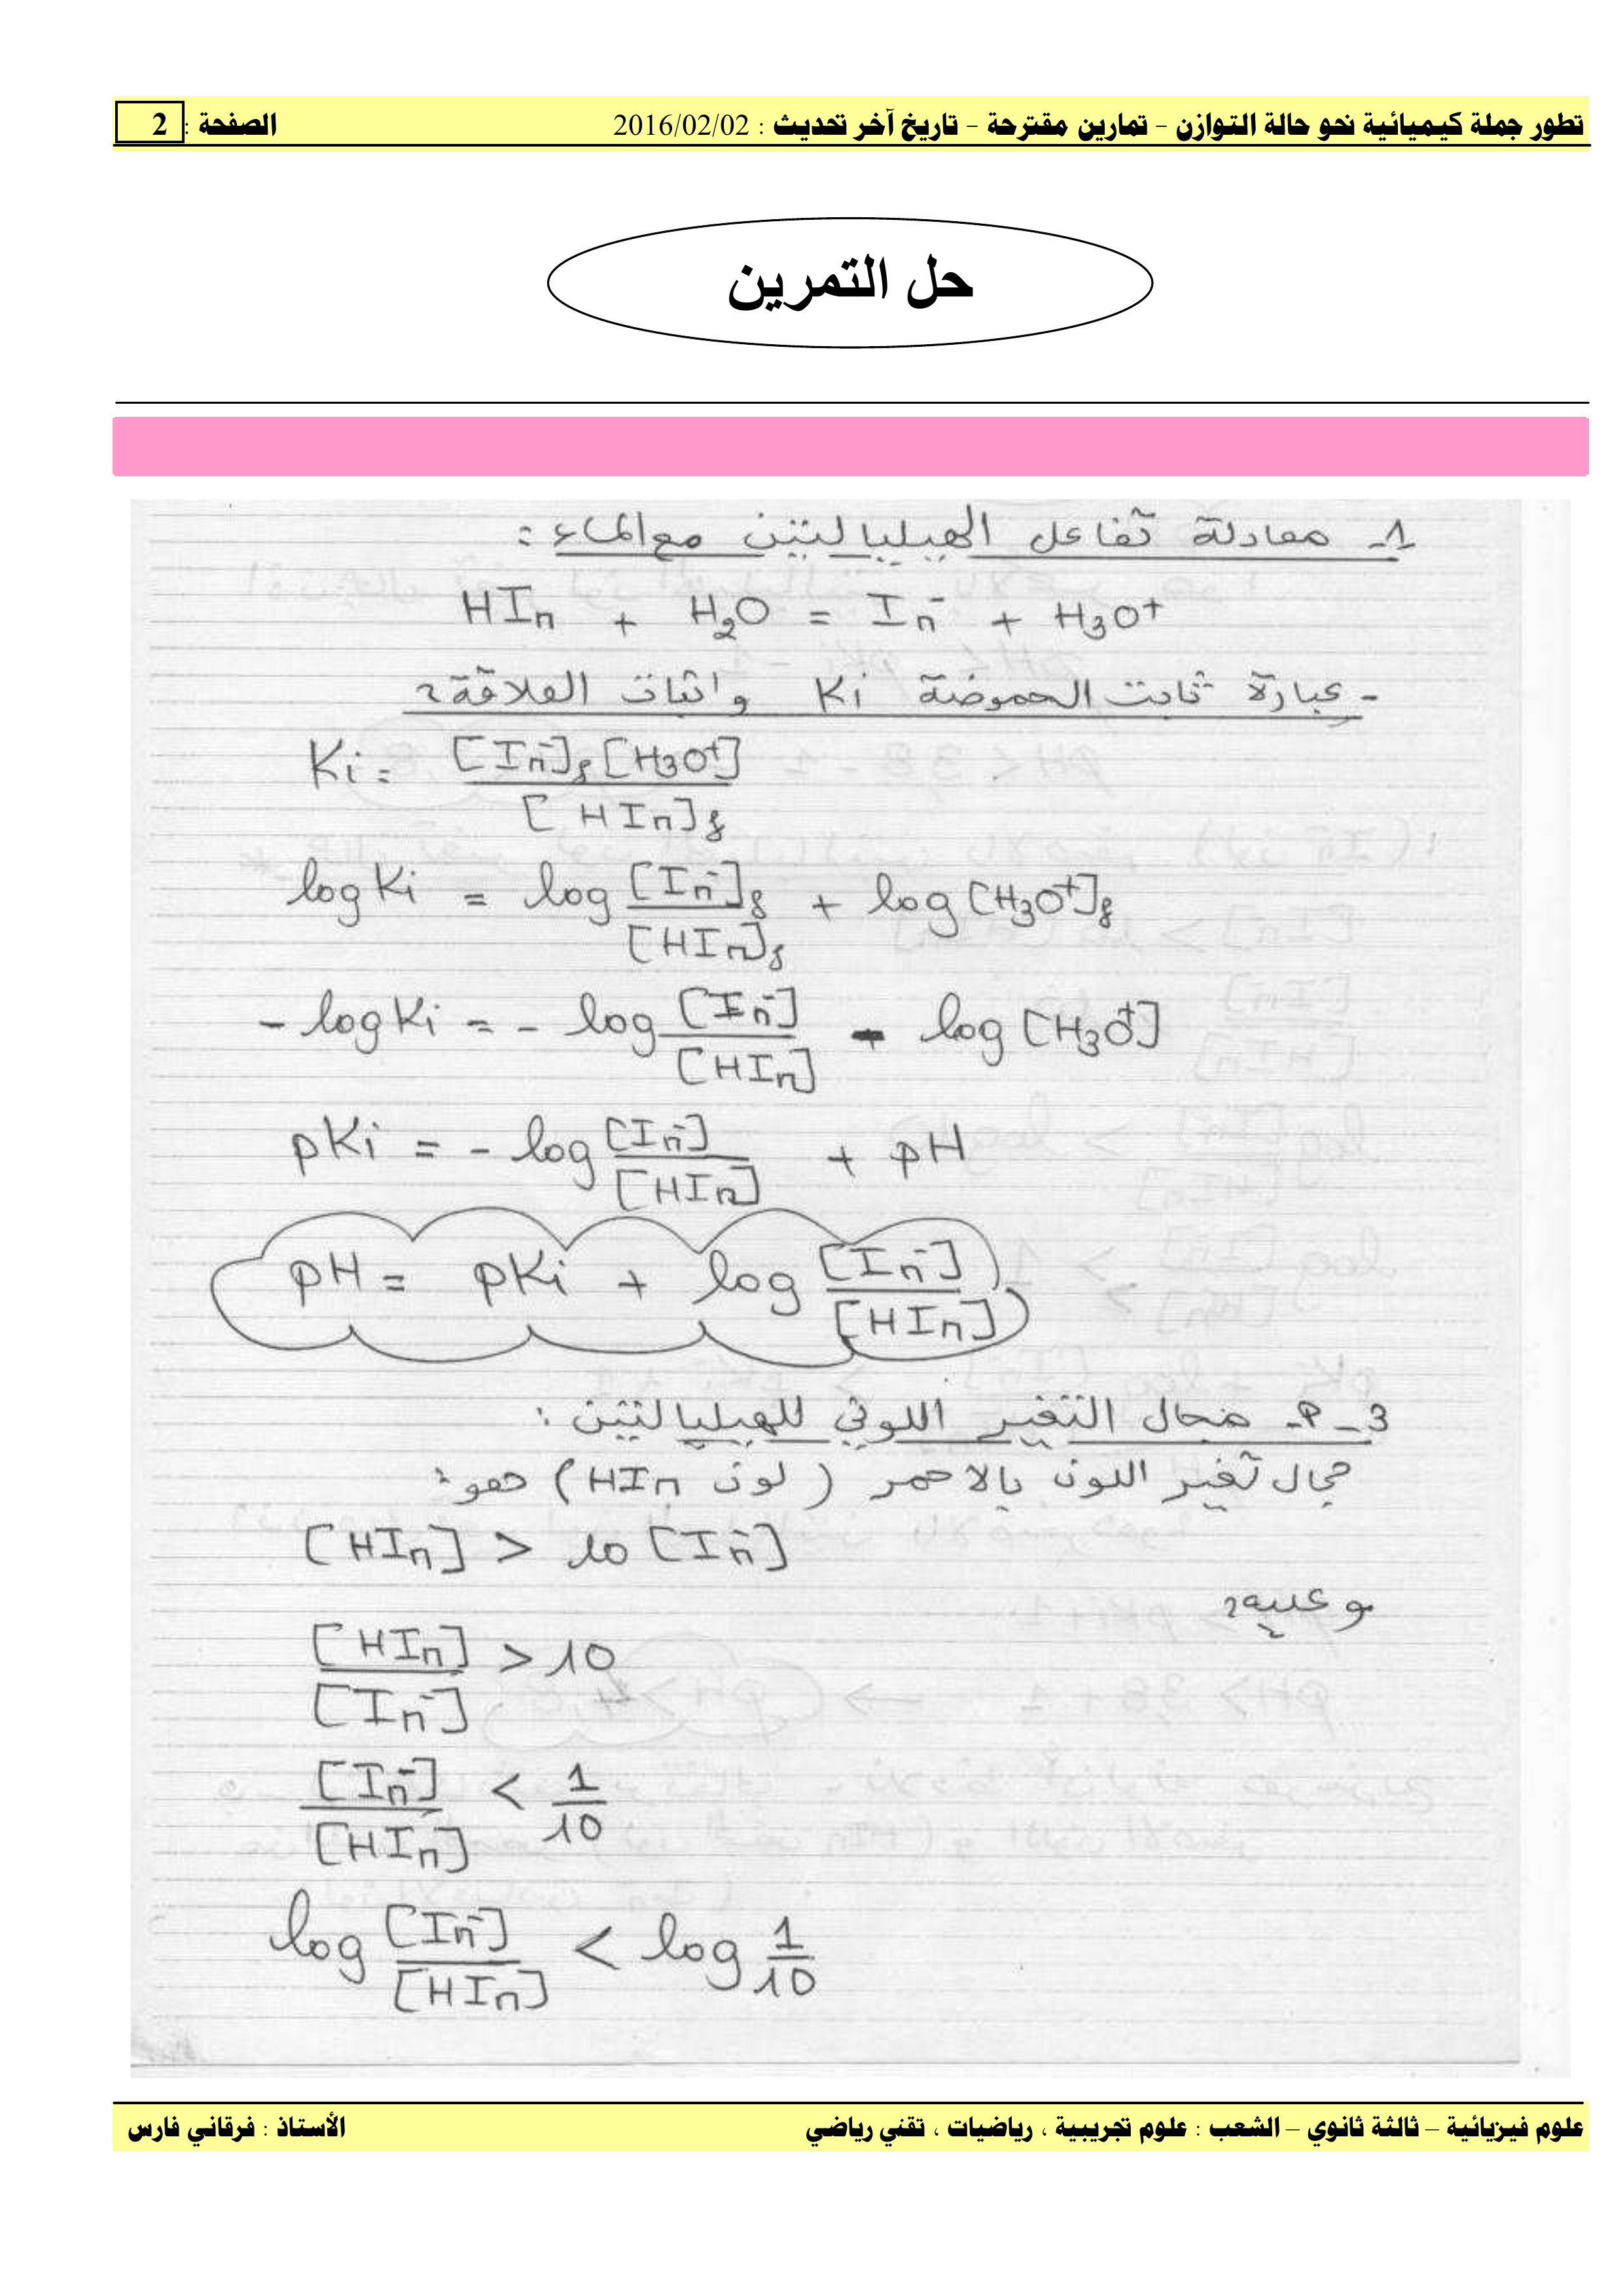 تطور جملة كيميائية نحو حالة التوازن – تمارين مقترحة – تاريخ آخر تحديث : 2016/02/02 الصفحة : 2
حل التمرين
1- معادلة تفاعل الهيليانتين مع الماء :
HIn + H₂O = In⁻ + H₃O⁺
- عبارة ثابت الحموضة Ki واثبات العلاقة :
Ki = [In⁻]f [H₃O⁺] / [HIn]f
log Ki = log [In⁻]f / [HIn]f + log [H₃O⁺]f
- log Ki = - log [In⁻] / [HIn] - log [H₃O⁺]
pKi = - log [In⁻] / [HIn] + pH
pH = pKi + log [In⁻] / [HIn]
3 - أ- مجال التغير اللوني للهيليانتين :
مجال تغير اللون بالاحمر (لون HIn) هو :
[HIn] > 10 [In⁻]
و عليه :
[HIn] / [In⁻] > 10
[In⁻] / [HIn] < 1/10
log [In⁻] / [HIn] < log 1/10
علوم فيزيائية – ثالثة ثانوي – الشعب : علوم تجريبية ، رياضيات ، تقني رياضي الأستاذ : فرقاني فارس